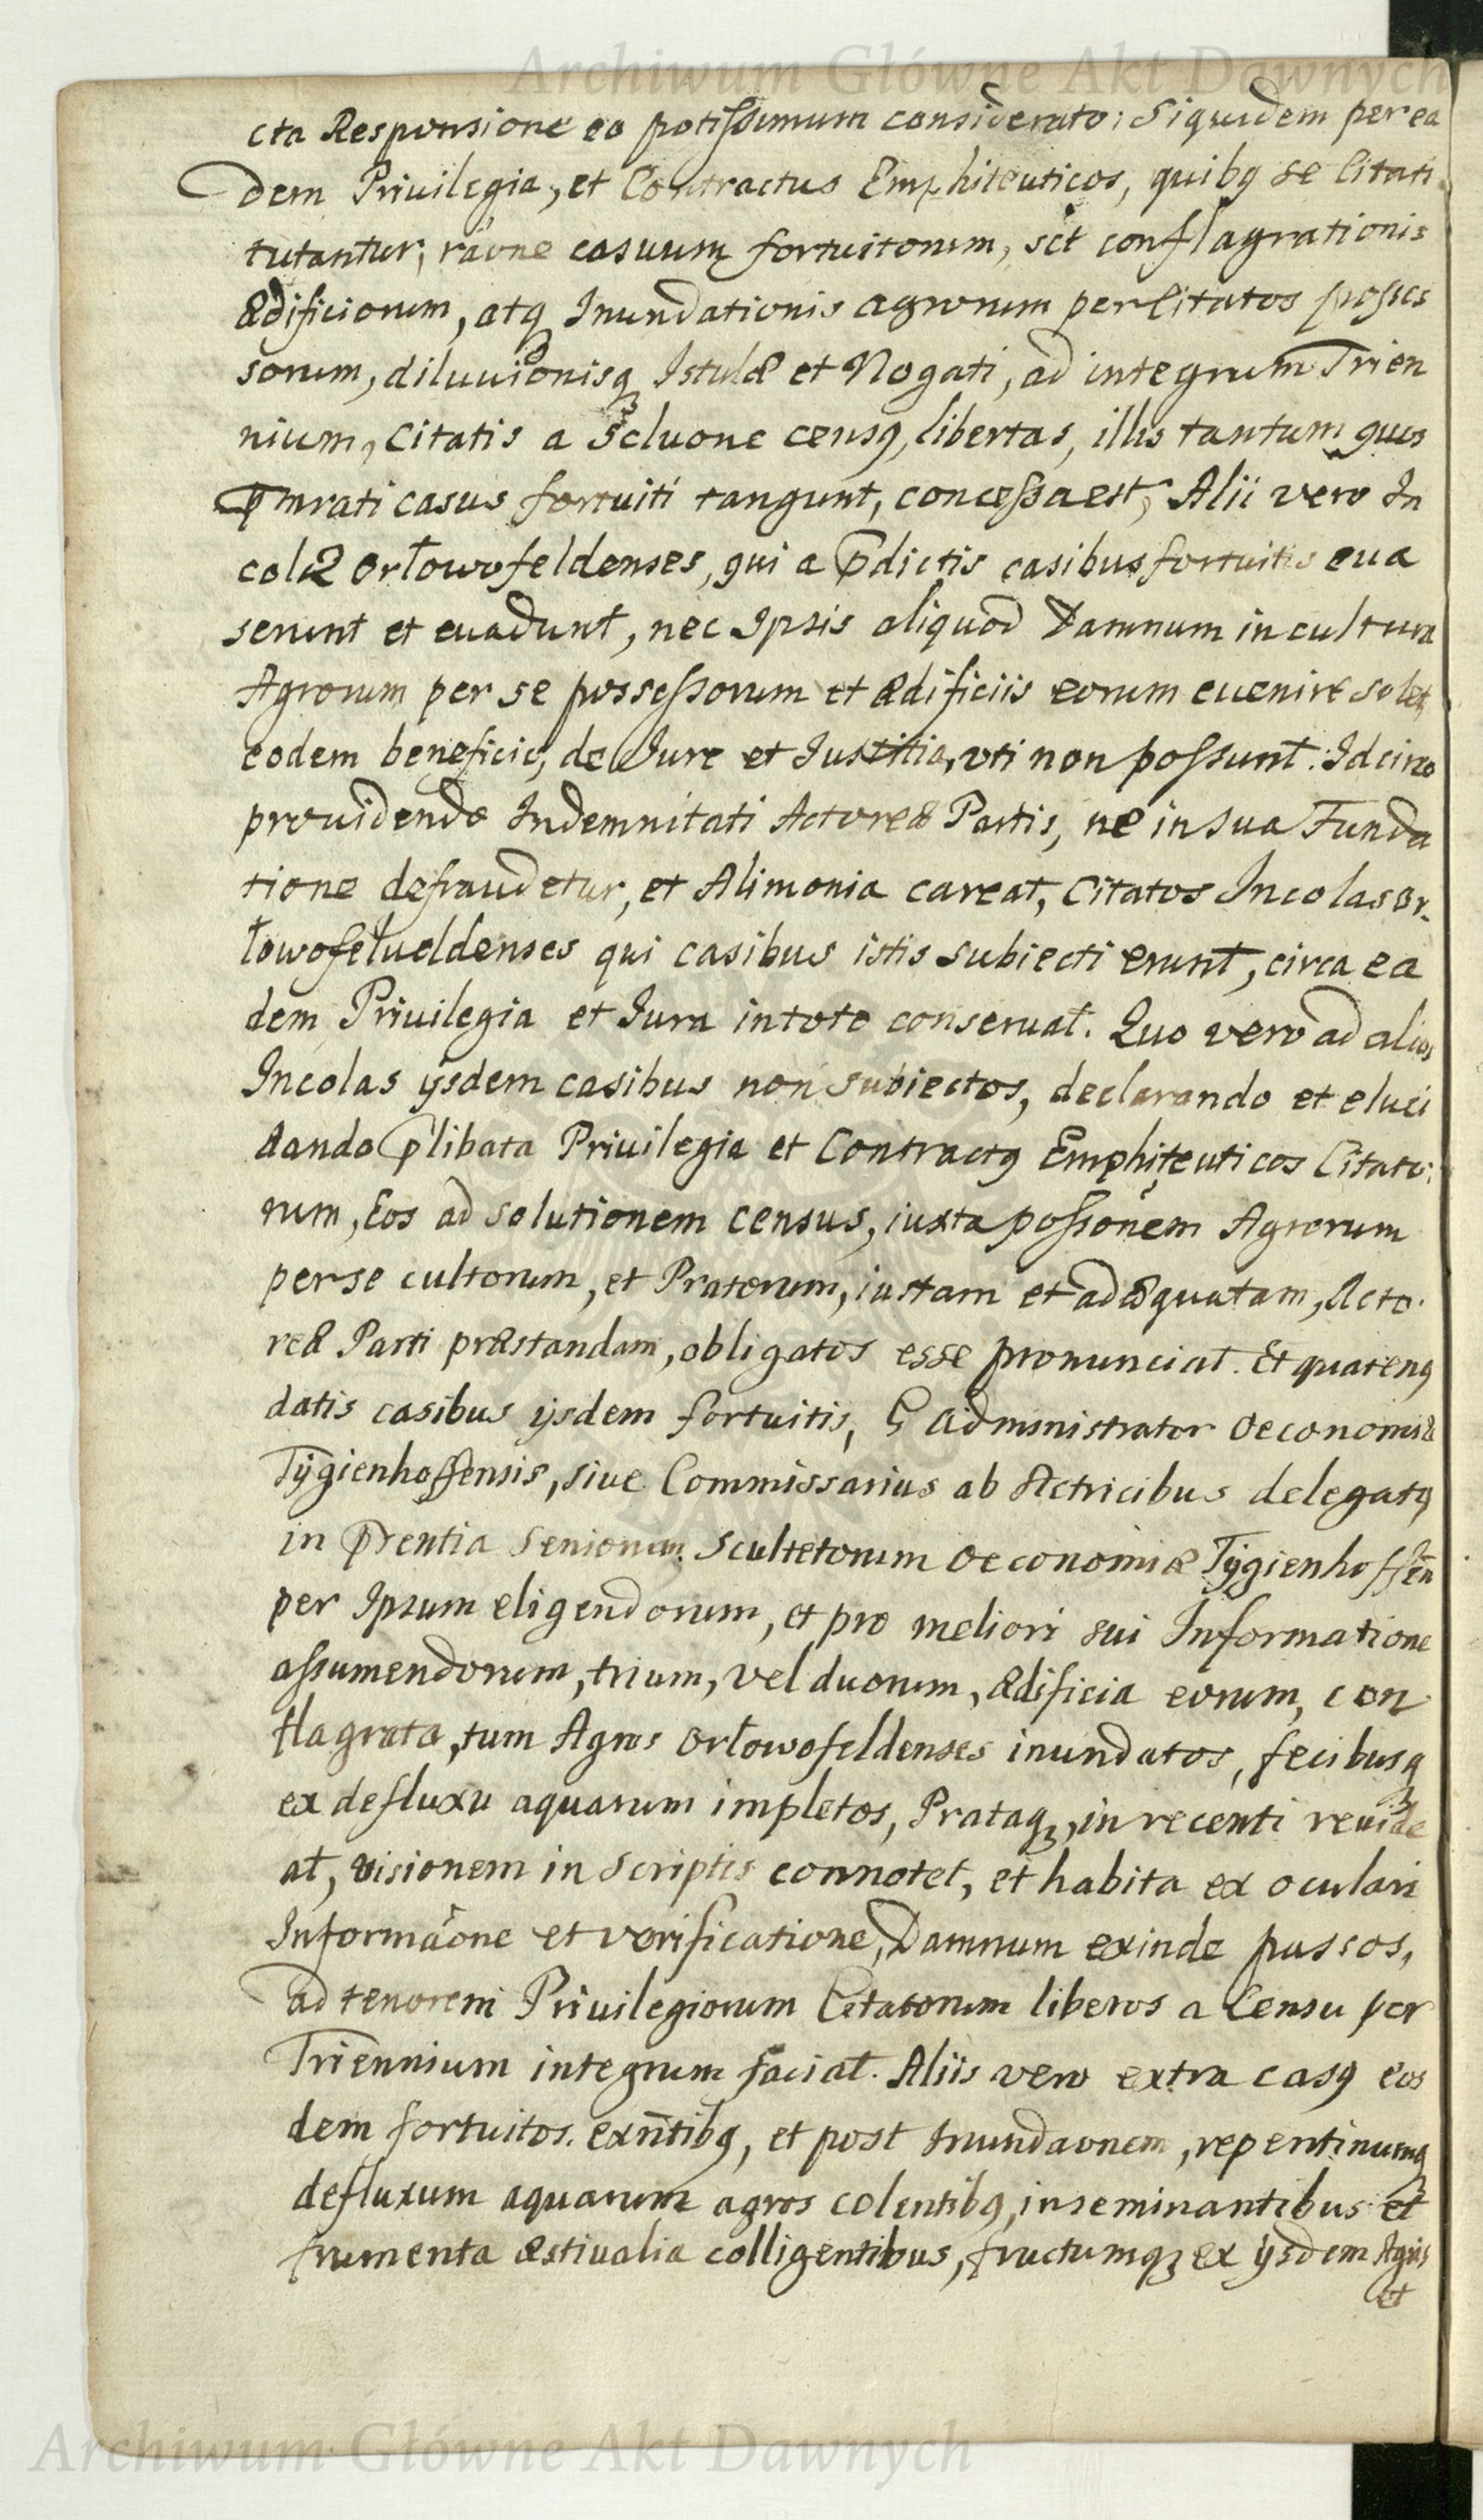 Archiwum Główne Akt Dawnych
cta Responsione eo potissimum considerato: Siquidem per ea
dem Priuilegia, et Contractus Emphiteuticos, quibꝯ se Citati
tutantur, raone casuum fortuitorum, sct conflagrationis
ædificiorum, atqꝫ Inundationis agrorum per Citatos posses
sorum, diluuionisqꝫ Istulæ et Nogati, ad integrum Trien
nium, Citatis a Soluone censꝯ, libertas, illis tantum quos
p̄mrati casus fortuiti tangunt, concessa est, Alii vero In
colæ Orłowofeldenses, qui a p̄dictis casibus fortuitis eua
serunt et euadunt, nec Ipsis aliquod Damnum in cultura
Agrorum per se possessorum et ædificiis eorum euenire solet,
eodem beneficio, de Iure et Iustitia, vti non possunt. Idcirco
prouidendo Indemnitati Actoreæ Partis, ne in sua Funda
tione defraudetur, et Alimonia careat, Citatos Incolas Or-
łowofełueldenses qui casibus istis subiecti erunt, circa ea
dem Priuilegia et Iura in toto conseruat. Quo vero ad alios
Incolas ijsdem casibus non subiectos, declarando et eluci
dando p̄libata Priuilegia et Contractꝯ Emphiteuticos Citato:
rum, Eos ad solutionem census, iuxta possonem Agrorum
per se cultorum, et Pratorum, iustam et adæquatam, Acto-
reæ Parti præstandam, obligatos esse pronunciat. Et quatenꝯ
datis casibus ijsdem fortuitis, G Administrator Oeconomiæ
Tygienhoffensis, siue Commissarius ab Actricibus delegatꝯ
in p̄rentia Seniorum Scultetorum Oeconomiæ Tygienhoffen̄
per Ipsum eligendorum, et pro meliori sui Informatione
assumendorum, trium, vel duorum, ædificia eorum, con
flagrata, tum Agros Orłowofeldenses inundatos, fecibusqꝫ
ex defluxu aquarum impletos, Prataqꝫ, in recenti reuide
at, visionem in scriptis connotet, et habita ex oculari
Informaone et verificatione, Damnum exinde passos,
ad tenorem Priuilegiorum Citatorum liberos a Censu per
Triennium integrum faciat. Aliis vero extra casꝯ eos
dem fortuitos. exn̄tibꝯ, et post Inundaonem, repentinumqꝫ
defluxum aquarum agros colentibꝯ, inseminantibus et
frumenta æstiualia colligentibus, fructumqꝫ ex ijsdem Agris
et
Archiwum Główne Akt Dawnych